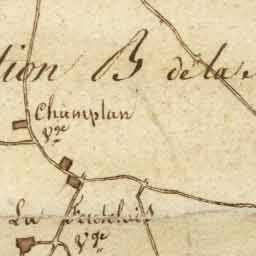 tion B de la
Champlan
Vge
La
Vge